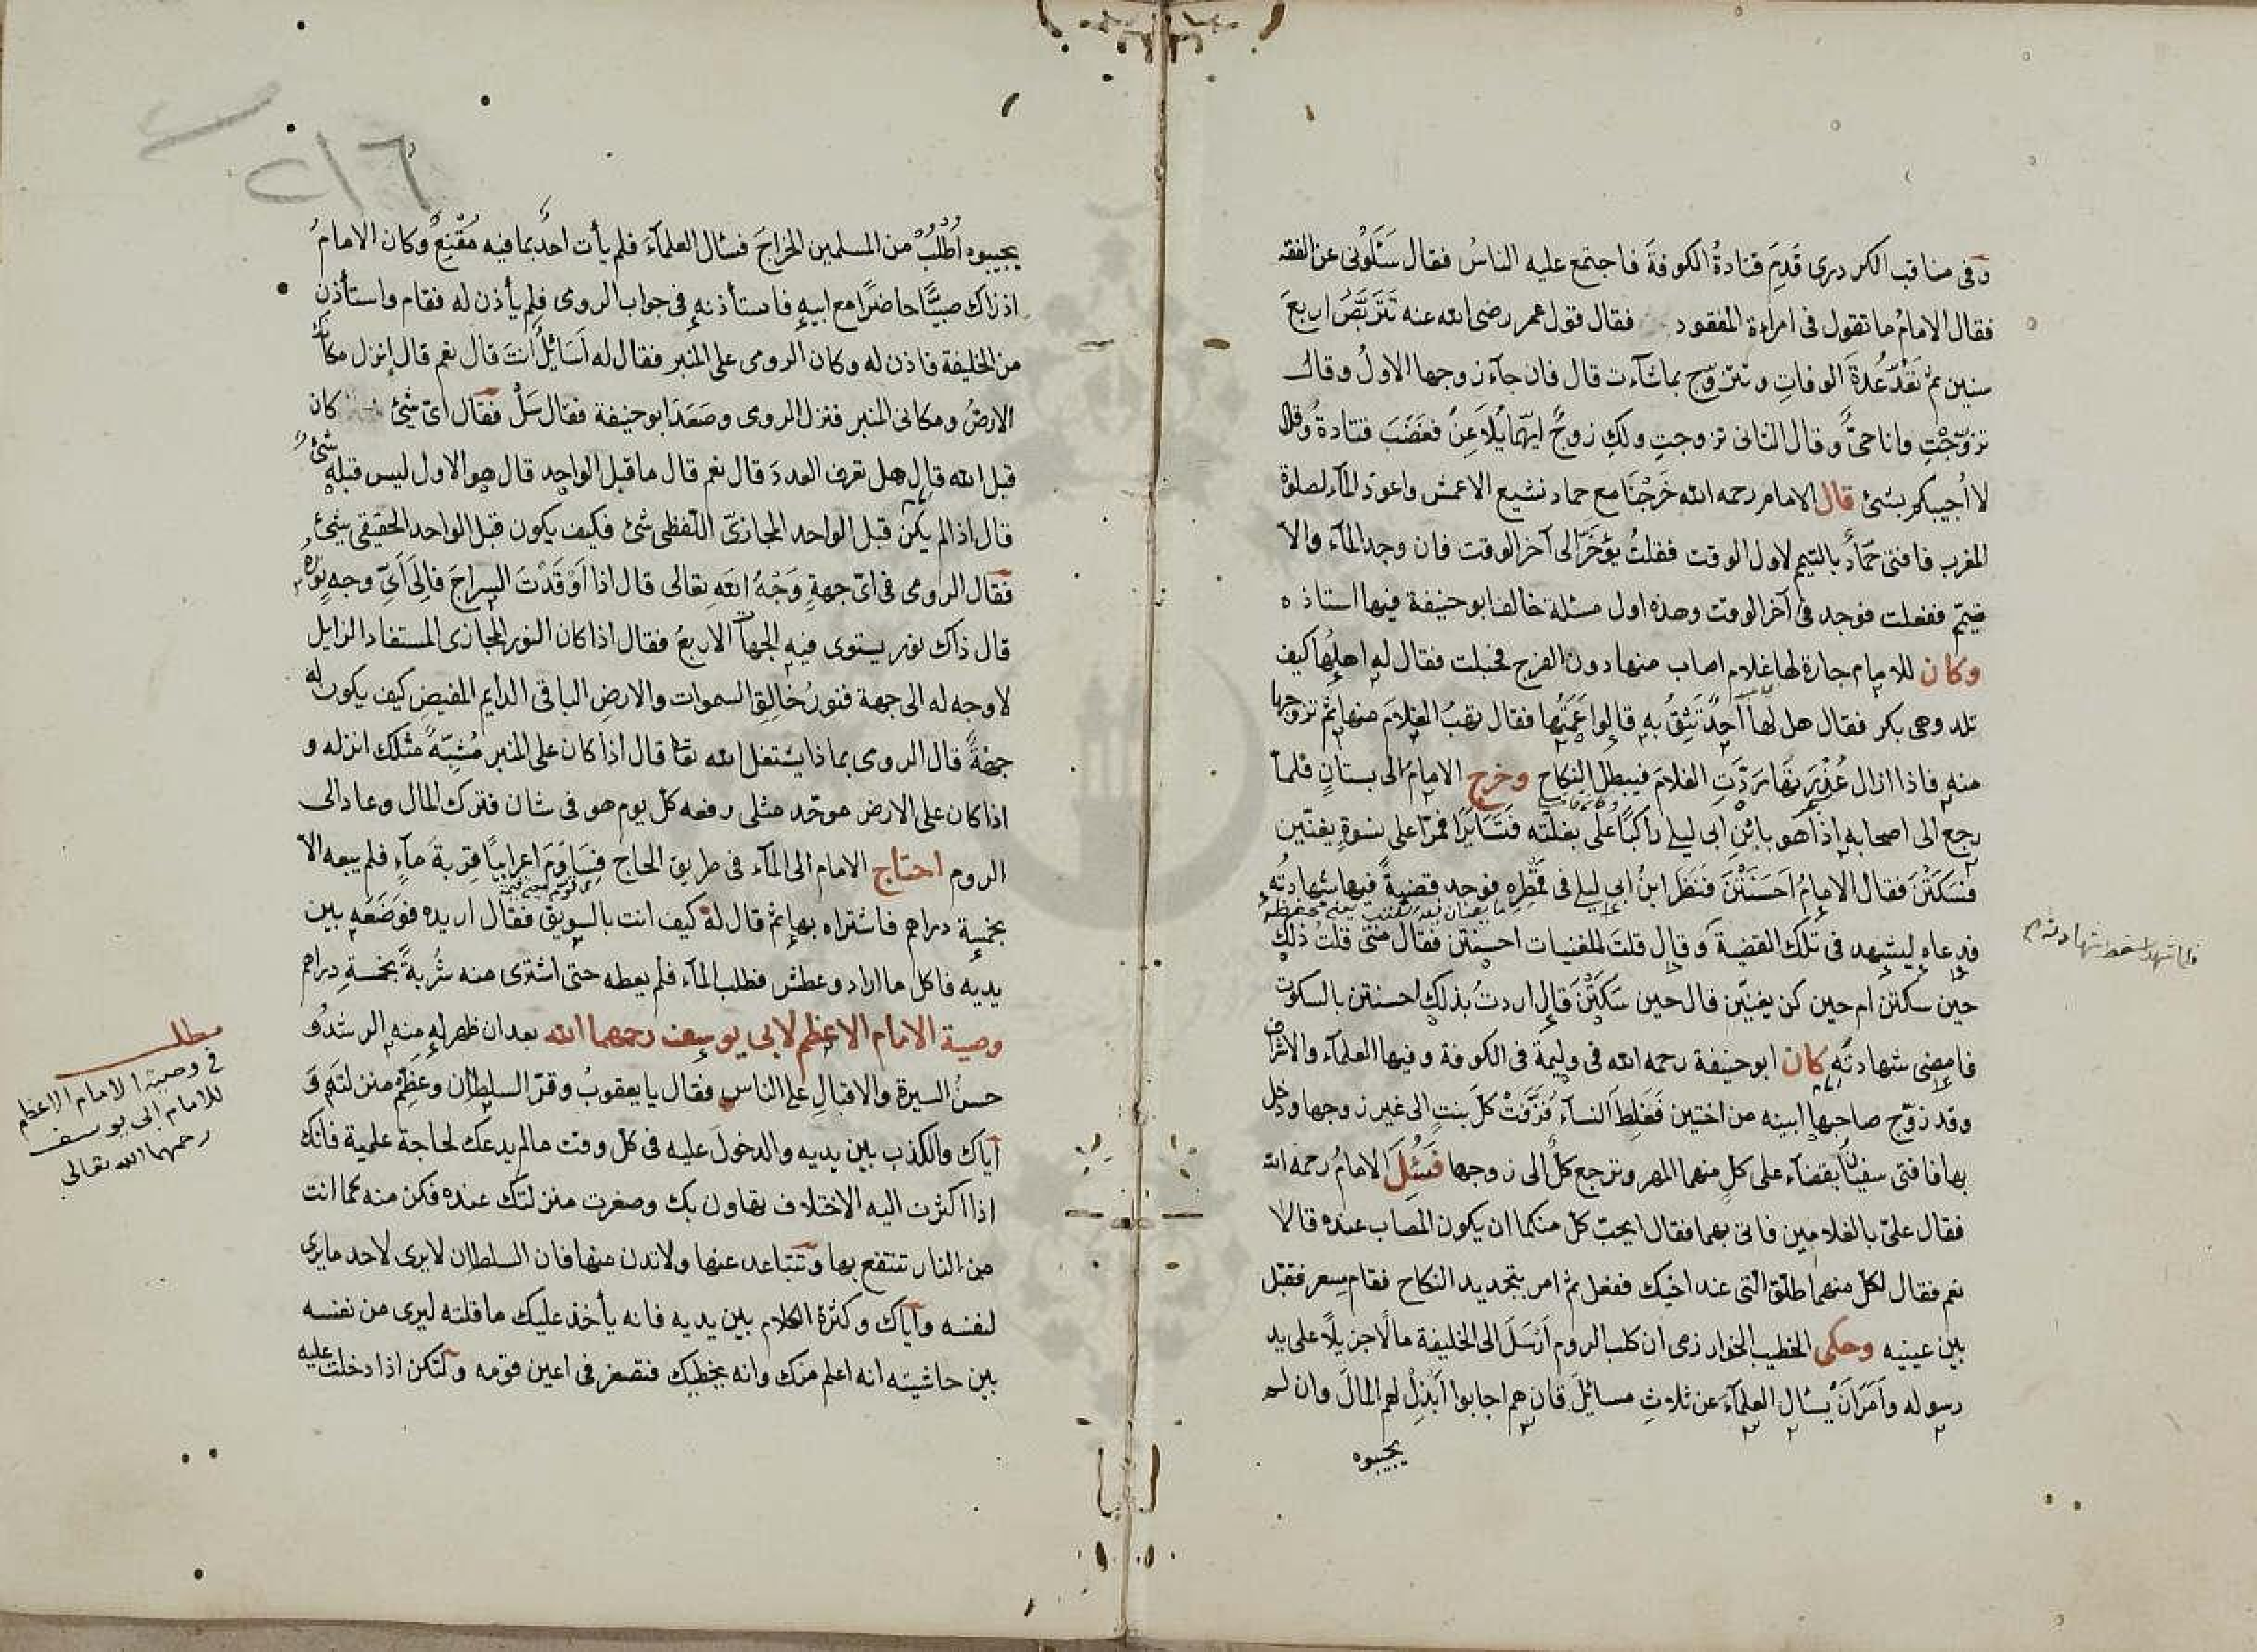 وفى مناقب الكردرى قَدِمَ قتادةُ الكوفةَ فاجتمع عليه الناسُ فقال سَئَلُونى عن الفقه
فقال الامامُ ما تقول فى امراءة المفقود فقال قول عمر رضى الله عنه تَتَرَبَّصُ اربعَ
سنين ثمّ تَعْدُّ عُدةَ الوفاتِ وتتزوّج بما شآءت قال فان جآء زوجها الاولُ وقال
تزوّجْتِ وانا حىٌّ وقال الثانى تزوجتِ ولكِ زوجٌ ايّهما يُلَاعِنُ فغَضَبَ قتادةُ وقال
لا اُجيبكم بشئ قال الامام رحمه الله خَرَجْنَا مع حماد نشيع الاعمش واعوذ المآء لصلوة
المغرب فافتى حمّادٌ بالتيمم لاول الوقت فقلتُ يؤخّرُ الى آخر الوقت فان وجد المآء والّا
فيتمّم ففعلت فوجد فى آخر الوقت وهذه اول مسئلة خالف ابو حنيفة فيها استاذه
وكان للامام جارة لها غلام اصاب منها دون الفرج فحبلت فقال له اهلها كيف
تلد وهى بكر فقال هل لها احدٌ تَثِقُ به قالوا عَمّتُها فقال تهبُ الغلامَ منها ثمّ تزوجها
منه فاذا ازال عُذْرَتَها رَدّتِ الغلامَ فيبطل النكاح وخرج الامامُ الى بستانٍ فلمّا
رجع الى اصحابه اذا هو بابْنِ ابى ليلى راكبًا على بغلته فتَسَايَرَا فمرّا على نسوةٍ يغنّين
فسَكَتْنَ فقال الامامُ اَحسَنْتُنَّ فنَظَرَ ابنُ ابى ليلى فى قمَطْرِه فوجد قضيةً فيها شهادتُه
فدعاه ليشهد فى تلك القضية وقال قلتَ للمغنيات احسنتن فقال متى قلتُ ذلك
حين سكتن ام حين كن يغنّين قال حين سَكَتْنَ قال اردتُ بذلك احسنتن بالسكوت
فامضى شهادتَه كان ابو حنيفة رحمه الله فى وليمة فى الكوفة وفيها العلمآء والاشراف
وقد زوّج صاحبها ابنيه من اختين فَغَلِطَ النسآء فزَفّتْ كلَّ بنتٍ الى غير زوجها ودخل
بها فافتى سفيانُ بقضآء على كلٍ منهما المهر وترجع كلٌ الى زوجها فَسُئِلَ الامامُ رحمه الله
فقال علىّ بالغلامين فاتى بهما فقال ايحبّ كلٌ منكما ان يكون المصاب عنده قالا
نعم فقال لكلٍ منهما طلّق التى عند اخيك ففعل ثم امر بتجديد النكاح فقام مِسعر فقبّل
بين عينيه وحكى الخطيب الخوارزمى ان كلب الروم اَرْسَلَ الى الخليفة مالًا جزيلًا على يد
رسوله وَاَمَرَ اَنْ يسئال العلمآء عن ثلاثِ مسائلَ فان هم اجابوا اَبْذِلْ لهم المالَ وان لم
يجيبوه
فلما شهد اسقط شهادته م
٢١٦
يجيبوه اُطْلُبْ من المسلمين الخراجَ فسئال العلمآءَ فلم يأت احدٌ بما فيه مُقْنِعٌ وكان الامامُ
اذ ذاك صبيًّا حاضرًا مع ابيه فاستأذنه فى جواب الرومى فلم يأذن له فقام واستأذن
من الخليفة فاذن له وكان الرومى على المنبر فقال له اَسَائِلٌ اَنتَ قال نعم قال اِنزل مكانك
الارضُ ومكانى المنبر فنزل الرومى وصَعَدَ ابو حنيفة فقال سَلْ فقال اىّ شئ كان
قبل الله قال هل تعرف العددَ قال نعم قال ما قبل الواحد قال هو الاول ليس قبله شئٌ
قال اذا لم يكن قبل الواحد المجازىّ اللفظى شئ فكيف يكون قبل الواحد الحقيقى شئ
فقال الرومى فى اىّ جهةٍ وَجْهُ اللّهِ تعالى قال اذا اَوْقَدْتَ السراجَ فاِلَى اَىِّ وجهٍ نوره
قال ذاك نور يستوى فيه الجهات الاربعُ فقال اذا كان النور المجازى المستفاد الزايل
لا وجه له الى جهة فنورُ خالِق السموات والارض الباقى الدايم المفيض كيف يكون له
جهةٌ قال الرومى بماذا يشتغل الله تعا قال اذا كان على المنبر مُشَبِّهٌ مثلك انزله و
اذا كان على الارض موحّد مثلى رفعه كلّ يوم هو فى شان فترك المال وعاد الى
الروم احتاج الامام الى المآء فى طريق الحاج فسَاوَمَ اعرابيًا قِربةَ مآءٍ فلم يبعه الّا
بخمسة دراهم فاشتراه بها ثم قال له كيف انت بالسويق فقال اريده فوَضَعَه بين
يديه فاكل ما اراد وعطش فطلب المآء فلم يعطه حتى اشترى منه شُربةً بخمسةِ دراهم
وصية الامام الاعظم لابى يوسف رحمهما الله بعد ان ظهر له منه الرشدُ و
حسنُ السيرة والاقبالِ على الناس فقال يا يعقوبُ وقّر السلطان وعَظّم منزلته وَ
اَيّاك والكذب بين يديه والدخولَ عليه فى كل وقت ما لم يدعك لحاجة علمية فانك
اذا اكثرت اليه الاختلاف تهاون بك وصغرت منزلتك عنده فكن منه كما انت
من النار تنتفع بها وتتباعد عنها ولا تدن منها فان السلطان لا يرى لاحد ما يرى
لنفسه واَيّاك وكثرة الكلام بين يديه فانه يأخذ عليك ما قلته ليرى من نفسه
بين حاشيته انه اعلم منك وانه يخطيك فتصغر فى اعين قومه ولتكن اذا دخلت عليه
مطلب
فى وصية الامام الاعظم
للامام ابى يوسف
رحمهما الله تعالى